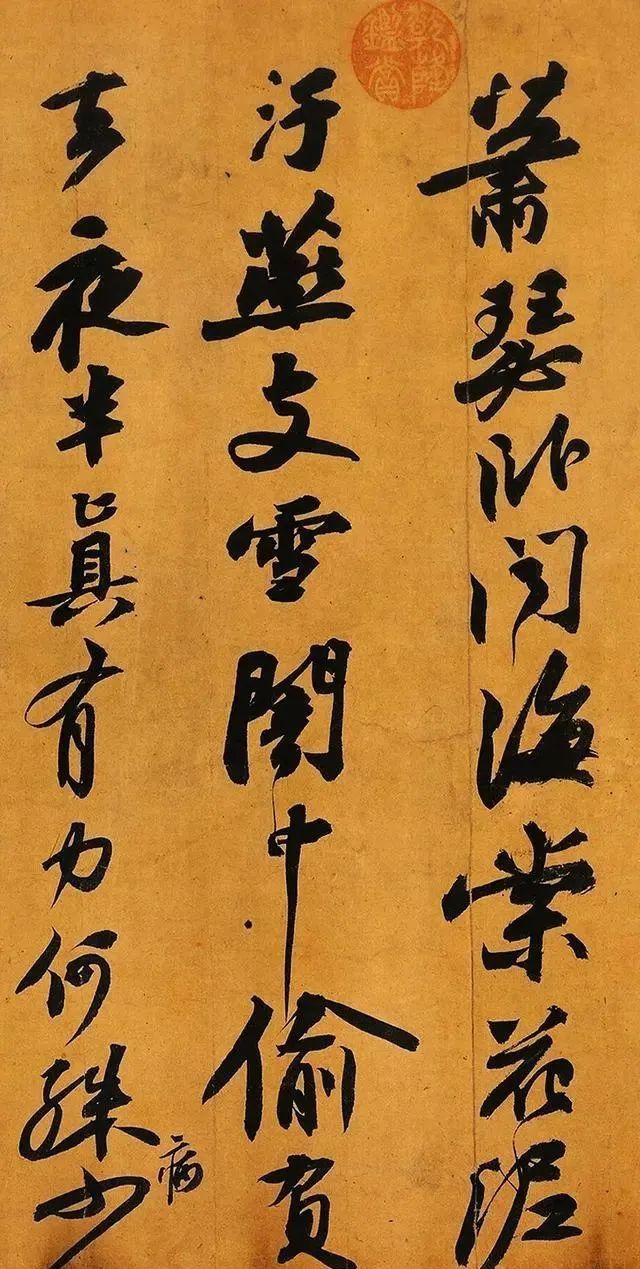 乾隆鑑賞
蕭瑟卧聞海棠花泥
汙燕支雪闇中偷負
去夜半眞有力何殊病少